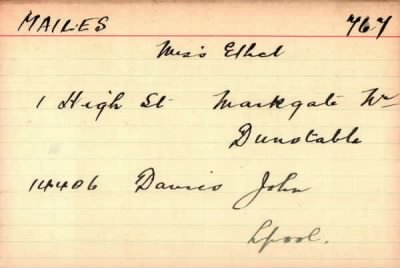 MAILES 767
Miss Ethel
1 High St Markgate Nr
Dunstable
14406 Davies John
Lpool.